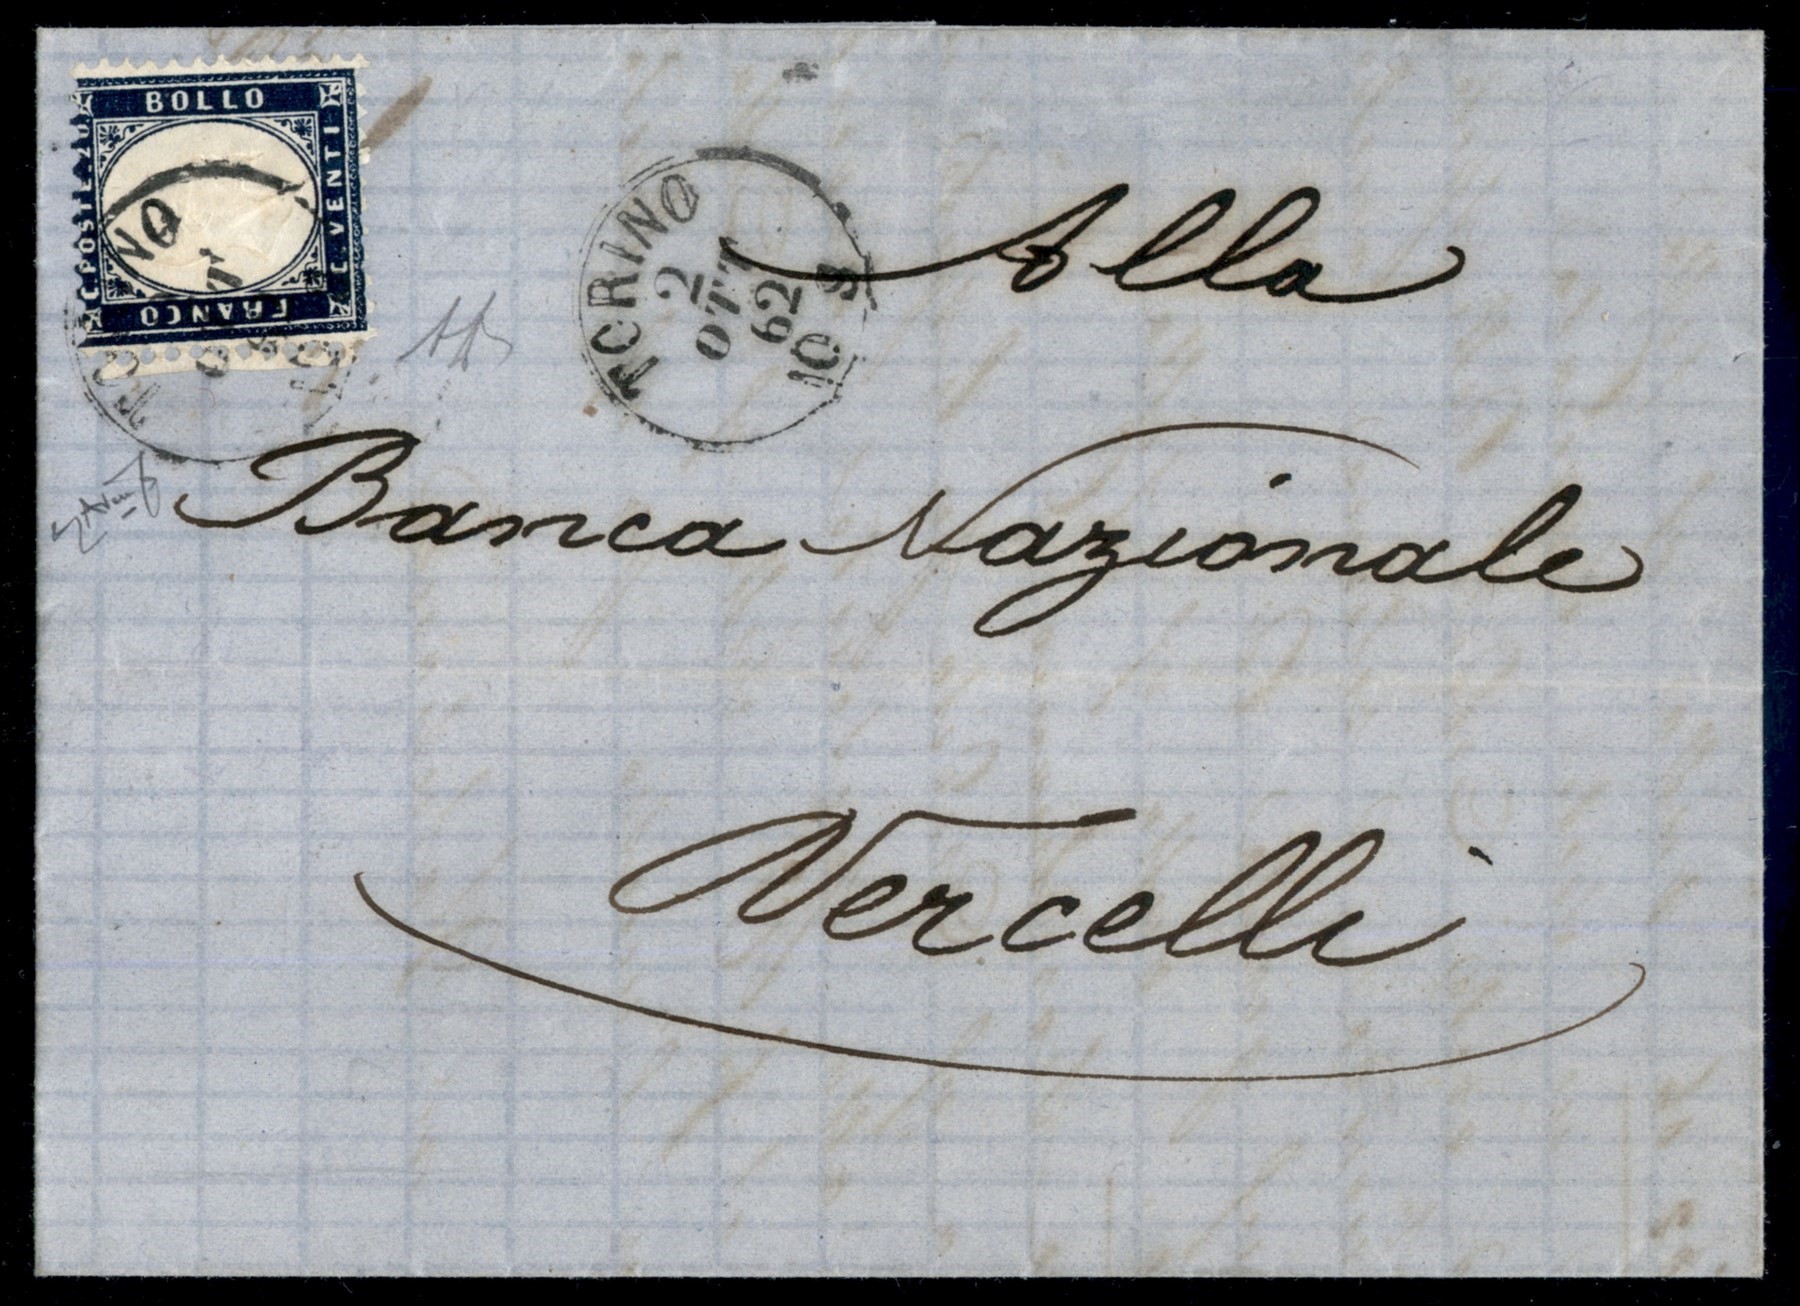 BOLLO
C. POSTE 20
C. VENTI
FRANCO
TORINO
2
OTT
62
10 S
Alla
Banca Nazionale
Vercelli